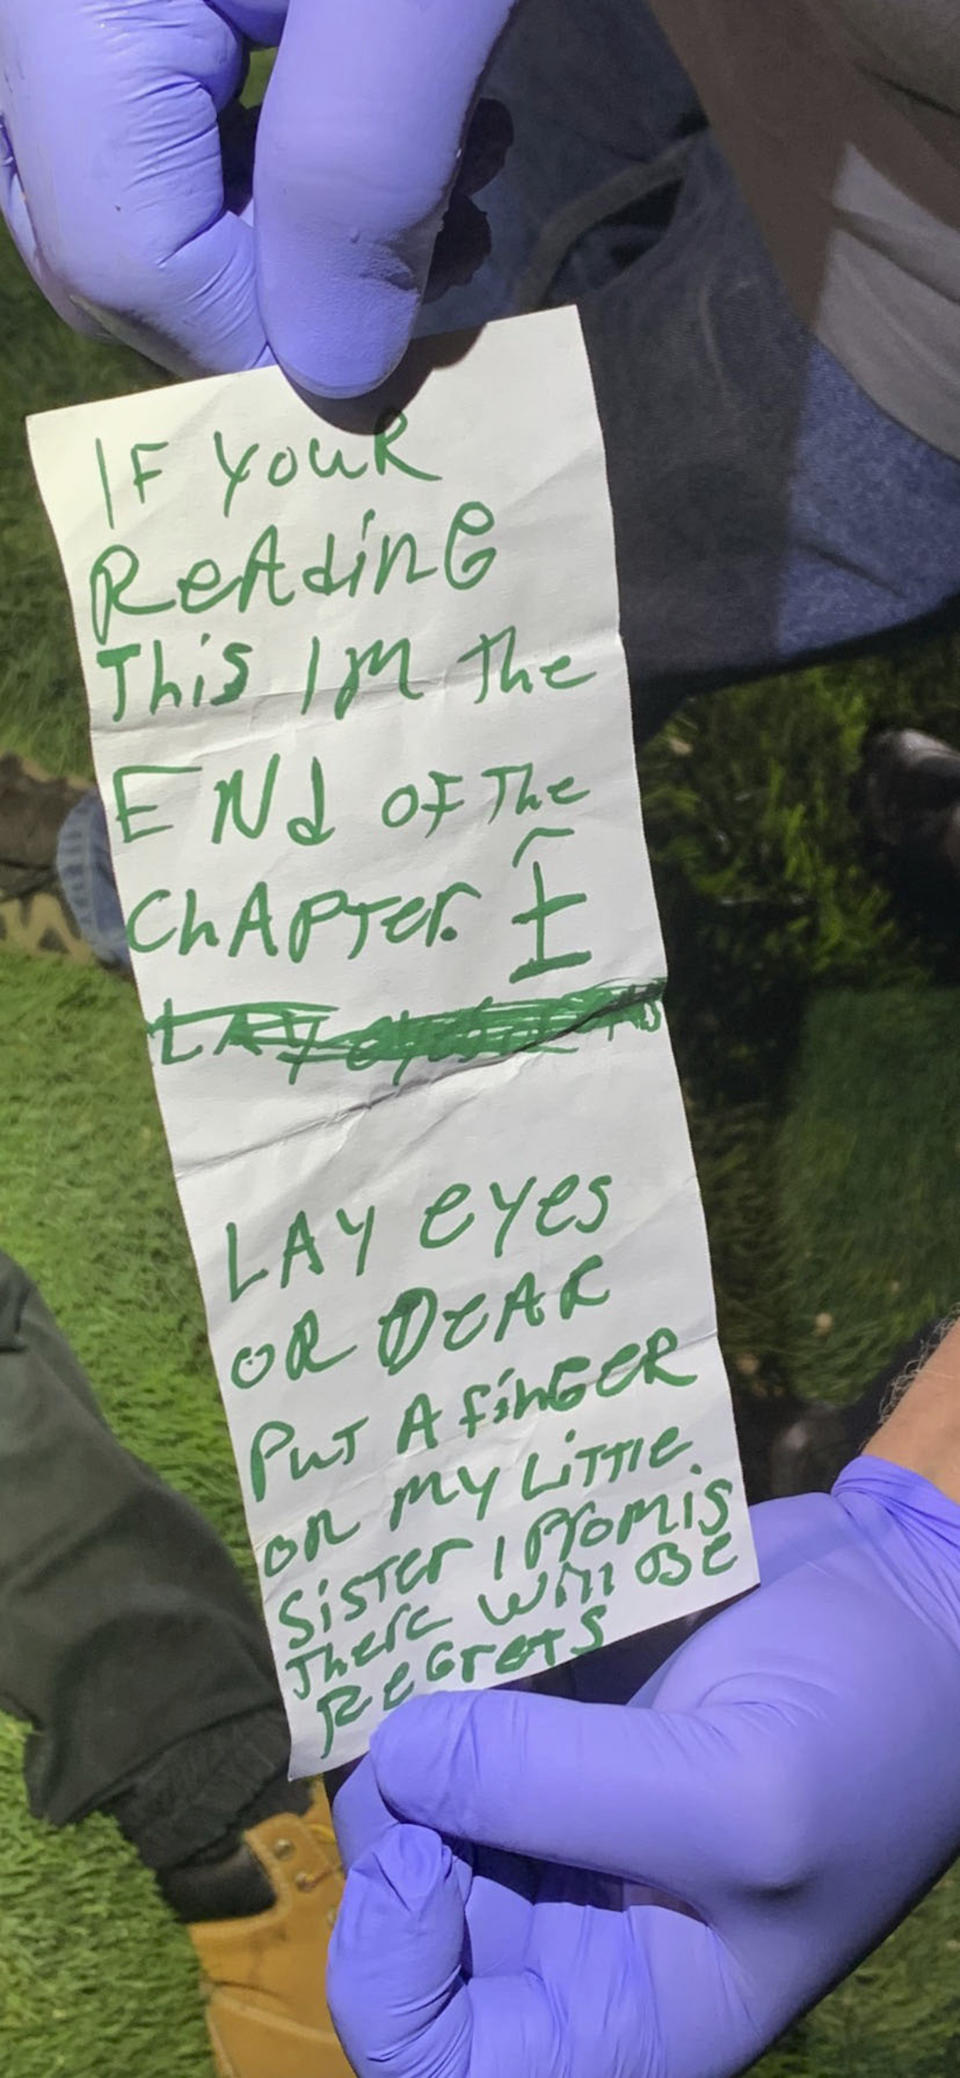 IF YouR
ReAdinG
This I'M The
ENd OF The
ChAPTer. I
LAY eyes
LAY eyes
OR DeAR
PuT A finGER
on MY LiTTle
SisTer I Promis
There Will Be
ReGreTS